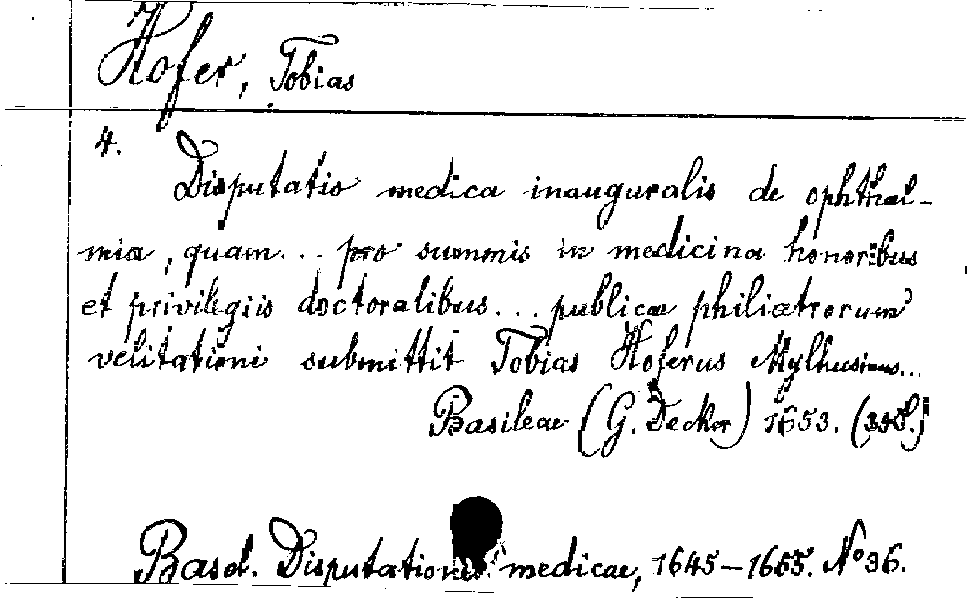 Hofer, Tobias
4.
Disputatio medica inauguralis de ophthal-
mia, quam... pro summis in medicina honoribus
et privilegiis doctoralibus... publicae philiatrorum
velitationi submittit Tobias Hoferus Mylhusinus...
Basileae (G. Decker) 1653.
Basel. Disputationes medicae, 1645-1665. No 36.